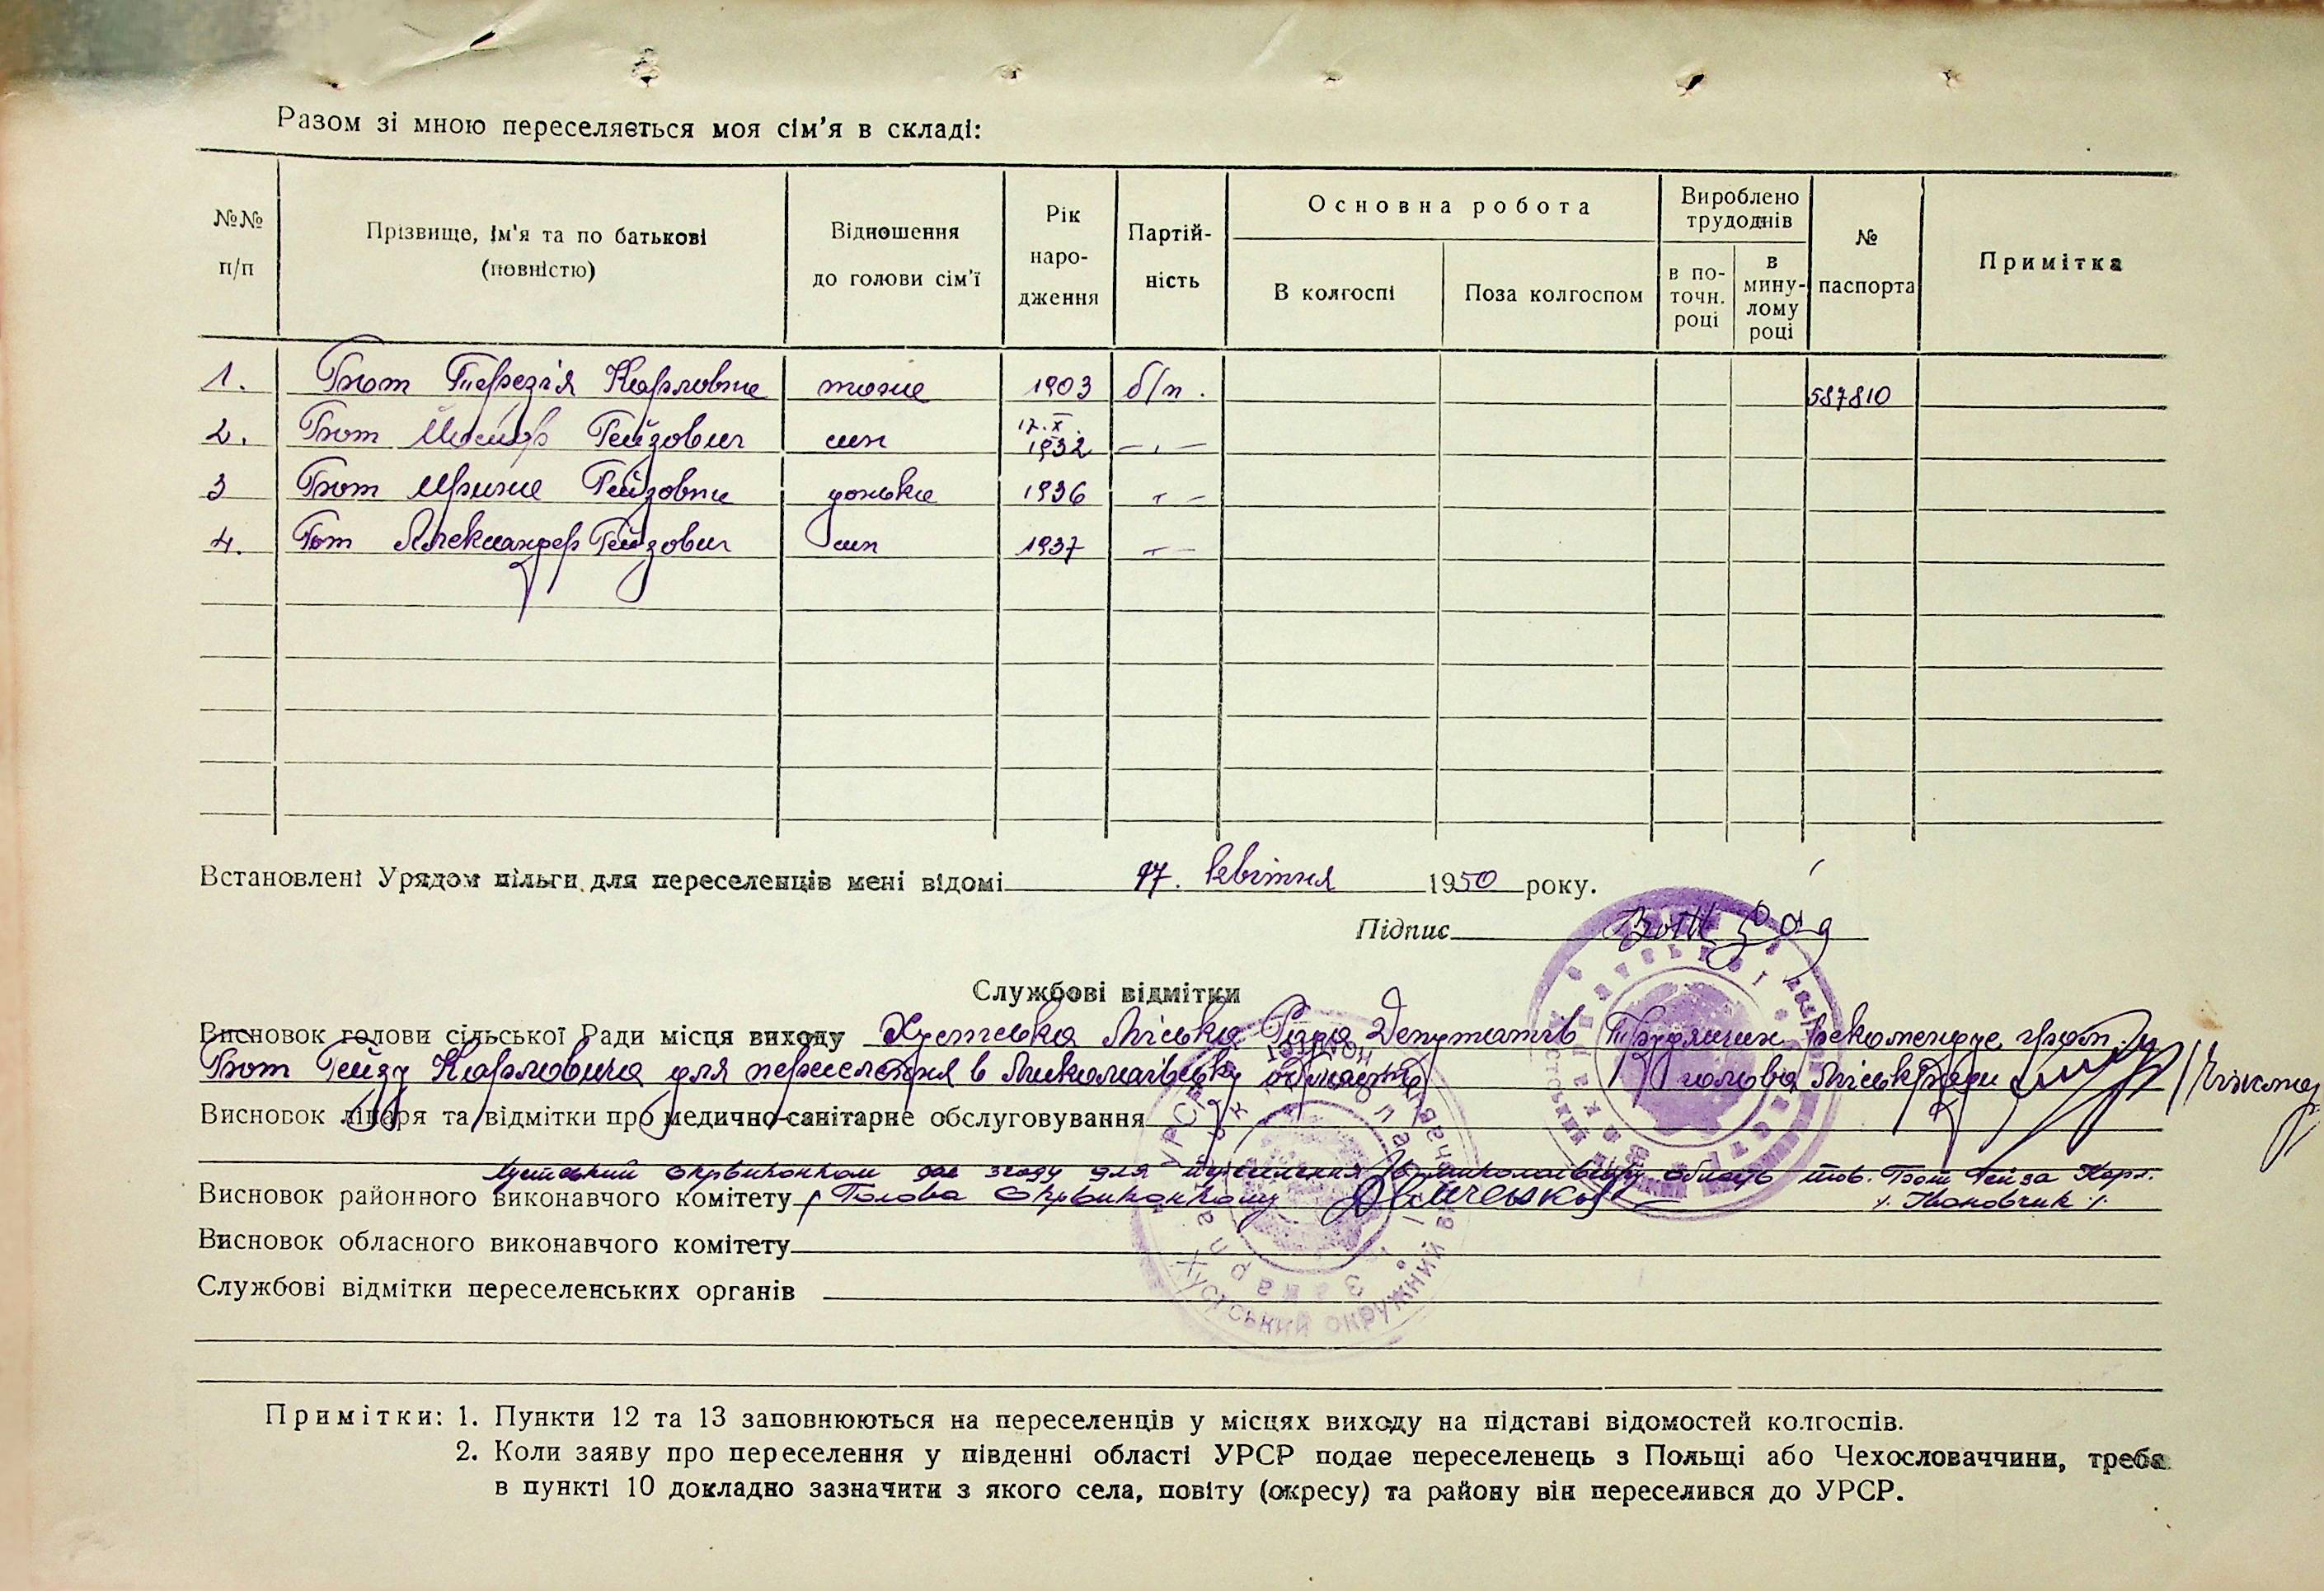 Разом зі мною переселяється моя сім'я в складі:
№№ п/п
Прізвище, ім'я та по батькові (повністю)
Відношення до голови сім'ї
Рік народження
Партійність
Основна робота
В колгоспі
Поза колгоспом
Вироблено трудоднів
в поточн. році
в минулому році
№ паспорта
Примітка
1. Бот Терезія Карловна жона 1903 б/п. 587810
2. Бот Йосиф Гейзович син 17.X. 1932 — " —
3 Бот Ирина Гейзовна донька 1936 — " —
4. Бот Александер Гейзович син 1937 — " —
Встановлені Урядом пільги для переселенців мені відомі 17. квітня 1950 року.
Підпис
Службові відмітки
Висновок голови сільської Ради місця виходу Хустська Міська Рада Депутатів Трудящих рекомендує гром.
Бот Гейзу Карловича для переселення в Миколаївську область голова Міськради
Висновок лікаря та відмітки про медично-санітарне обслуговування
Хустський окрвиконком дає згоду для переселення в Миколаївську область тов. Бот Гейза Карл.
Висновок районного виконавчого комітету Голова Окрвиконкому /. Івановчик ./.
Висновок обласного виконавчого комітету
Службові відмітки переселенських органів
Хустський окружний
Примітки: 1. Пункти 12 та 13 заповнюються на переселенців у місцях виходу на підставі відомостей колгоспів.
2. Коли заяву про переселення у південні області УРСР подає переселенець з Польщі або Чехословаччини, треба
в пункті 10 докладно зазначити з якого села, повіту (окресу) та району він переселився до УРСР.